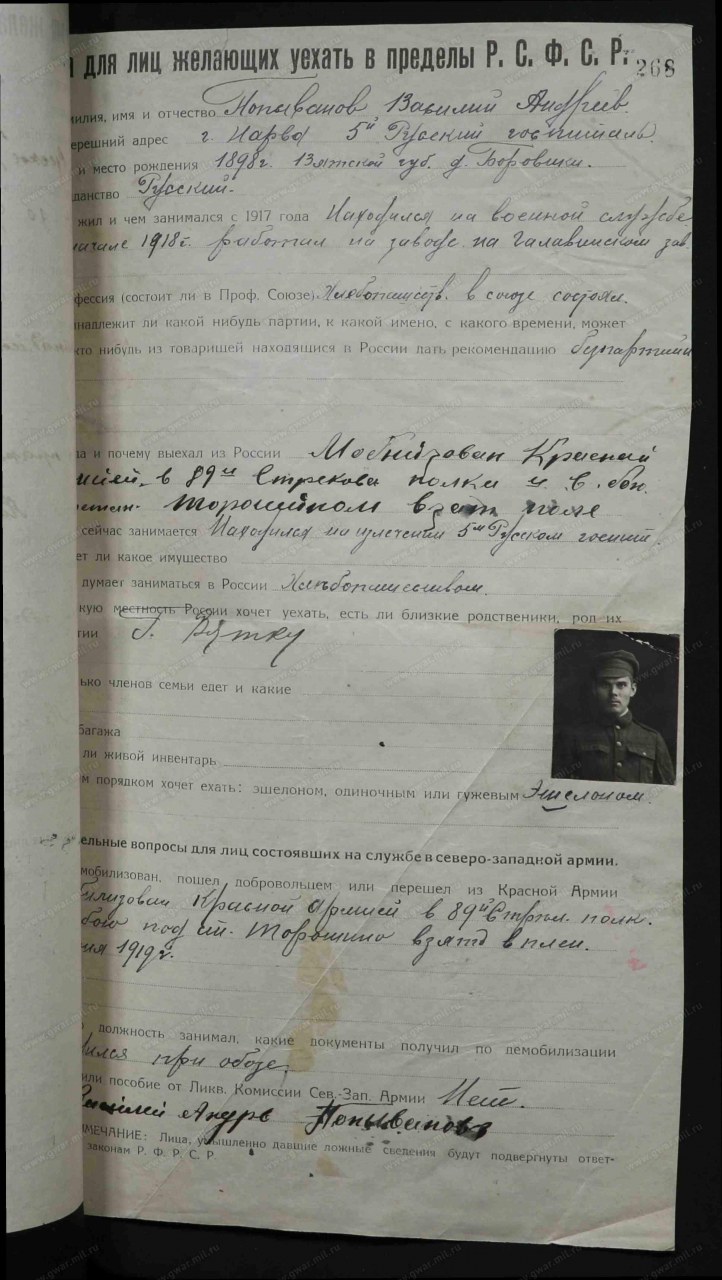 для лиц желающих уехать в пределы Р. С. Ф. С. Р.
268
милия, имя и отчество Попыванов Василий Андреев.
перешний адрес г. Нарва 5й Русский госпиталь.
и место рождения 1898г. Вятской губ. д. Боровики.
данство Русский.
жил и чем занимался с 1917 года Находился на военой службе
начале 1918г. работал на заводе на зав
фессия (состоит ли в Проф. Союзе) в союзе состоял.
надлежит ли какой нибудь партии, к какой имено, с какого времени, может
кто нибудь из товарищей находящися в России дать рекомендацию
да и почему выехал из России Мобилизован Красной
в 89м полку и в
взят плен
сейчас занимается Находился на излечении 5м Русском госпит.
ет ли какое имущество
думает заниматься в России Хлебопашеством.
кую местность России хочет уехать, есть ли близкие родственики, род их
тии г. Вятку
ько членов семьи едет и какие
багажа
ли живой инвентарь
м порядком хочет ехать: эшелоном, одиночным или гужевым Эшелоном.
ельные вопросы для лиц состоявших на службе в северо-западной армии.
мобилизован, пошел добровольцем или перешел из Красной Армии
билизован Красной армией в 89й Стрел. полк.
бою под ст. Торошино взят в плен.
ия 1919г.
должность занимал, какие документы получил по демобилизации
ился при обозе.
или пособие от Ликв. Комиссии Сев.-Зап. Армии Нет.
Василей Андре Попыванов
МЕЧАНИЕ: Лица, умышленно давшие ложные сведения будут подвергнуты ответ-
законам Р. Ф. Р. С. Р.
www.gwar.mil.ru